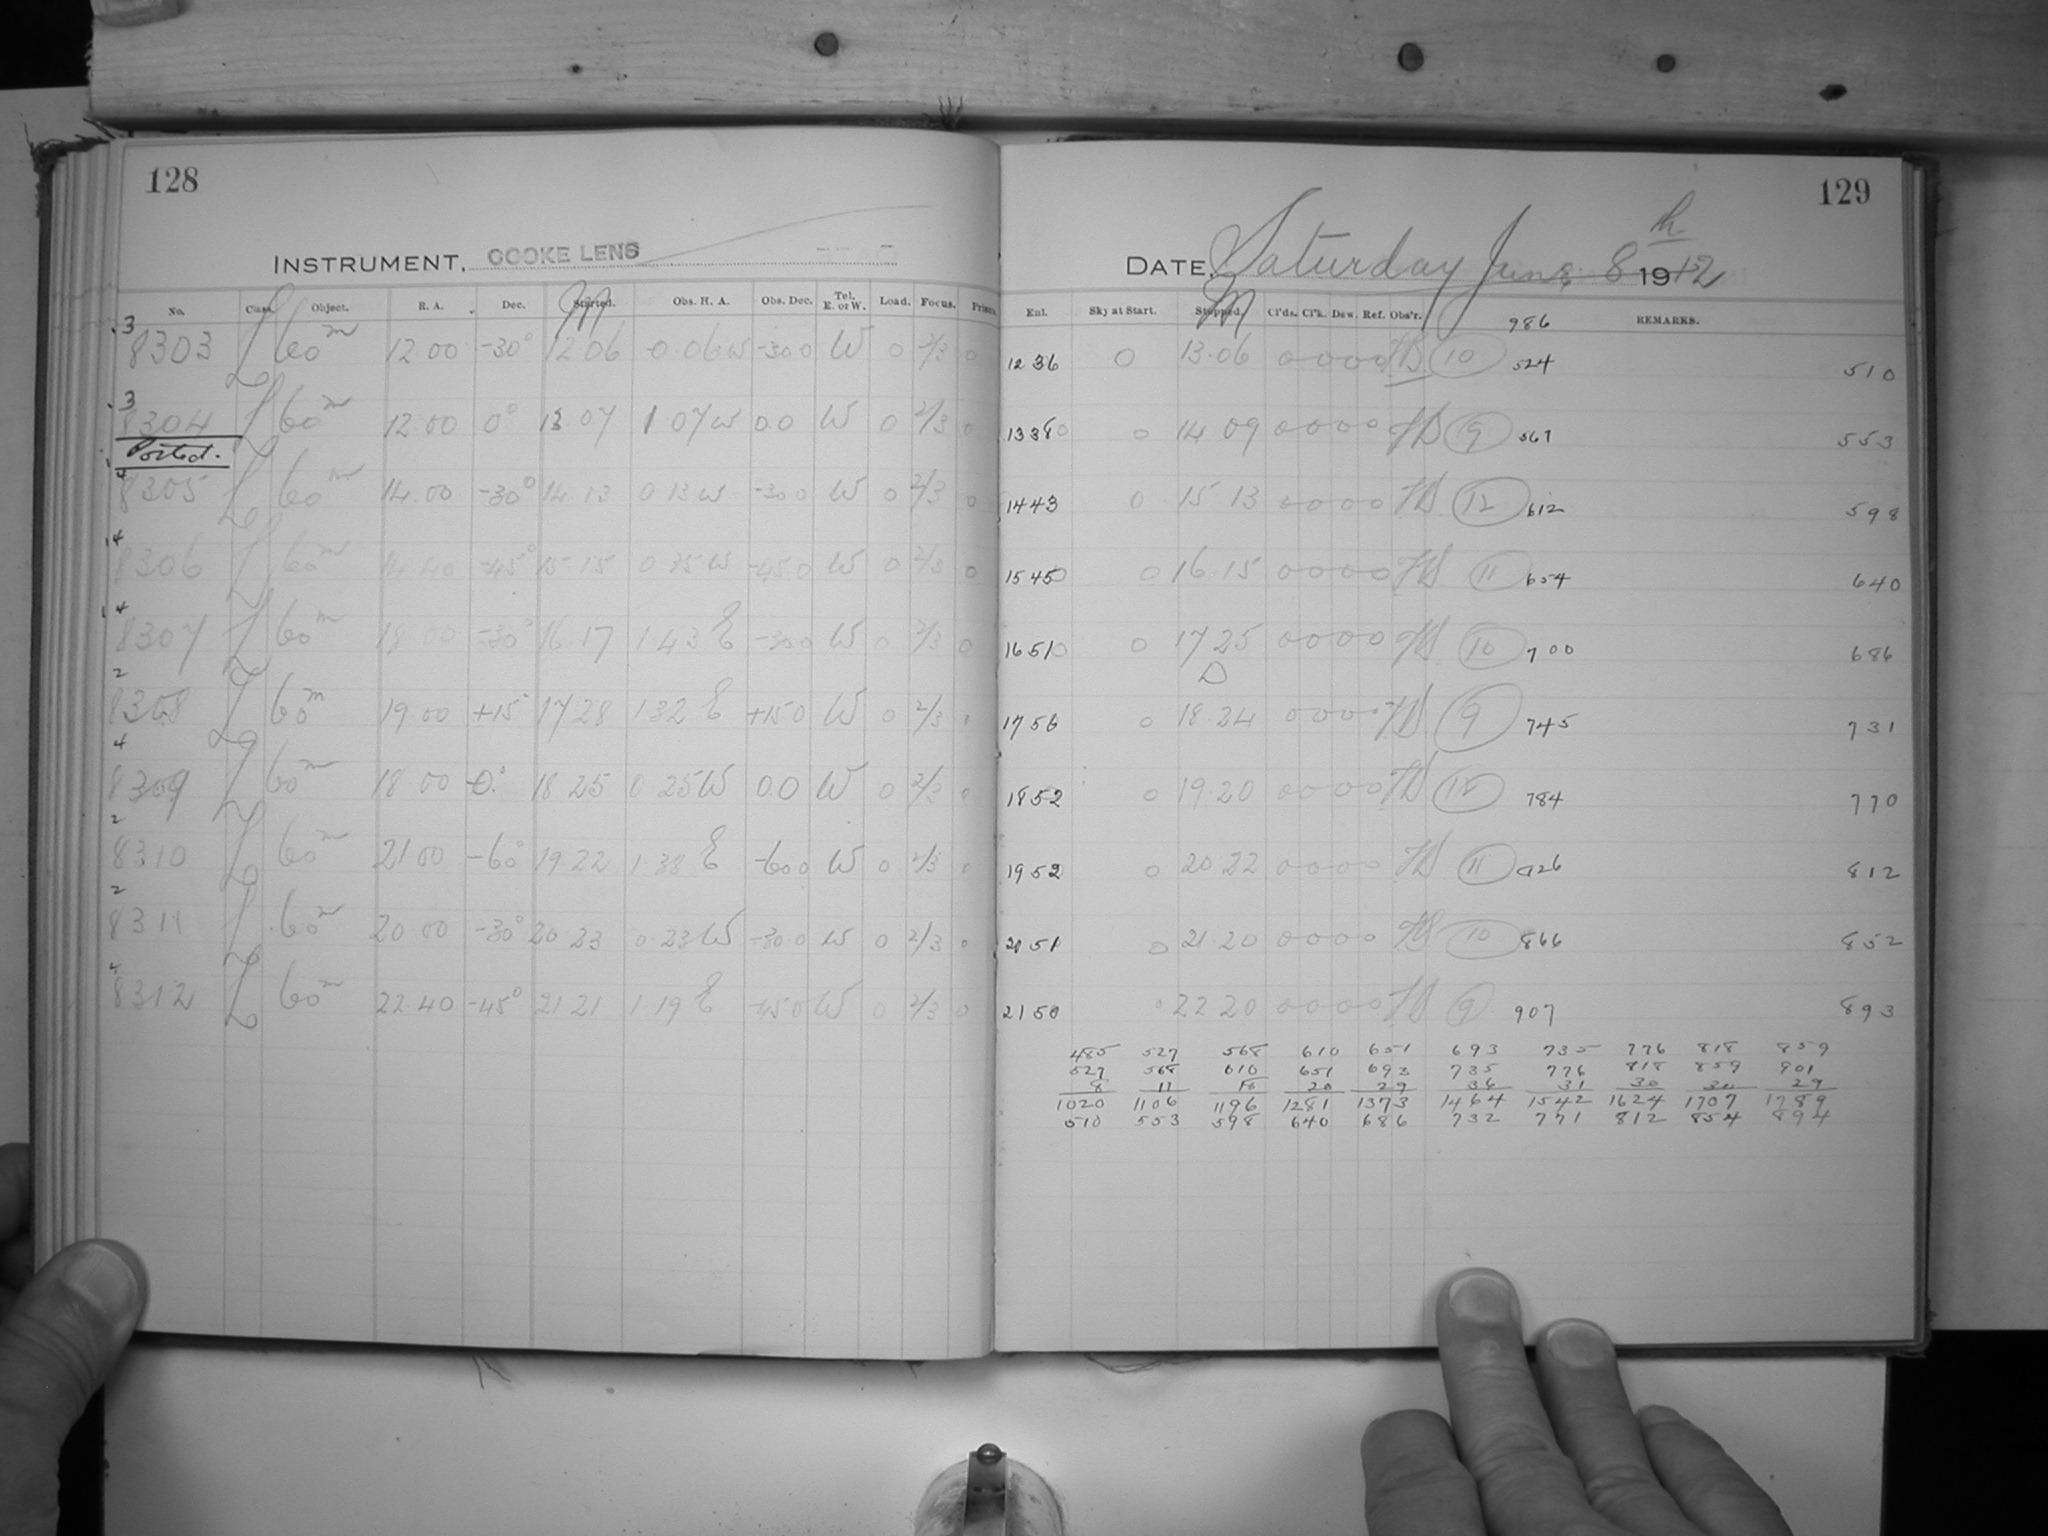 128
INSTRUMENT, COOKE LENS
No. Class. Object. R. A. Dec. Started. Obs. H. A. Obs. Dec. Tel. E. or W. Load. Focus. Prism.
3
8303 L 60m 12.00 -30° 12 06 0.06 W -30 0 W 0 2/3 0
3
8304 L 60m 12.00 0° 13 07 1 07 W 0.0 W 0 2/3 0
Posted.
4
8305 L 60m 14.00 -30° 14.13 0 13 W -30 0 W 0 2/3 0
4
8306 L 60m 14.40 -45° 15.15 0 35 W -45 0 W 0 2/3 0
4
8307 L 60m 18 00 -30° 16.17 1.43 E -30 0 W 0 2/3 0
2
8308 L 60m 19.00 +15 17 28 1 32 E +15 0 W 0 2/3
4
8309 L 60m 18 00 0° 18 25 0 25 W 0.0 W 0 2/3
2
8310 L 60m 21 00 -60 19 22 1.38 E -60 0 W 0 2/3
2
8311 L 60m 20 00 -30° 20 23 0.23 W -30.0 W 0 2/3 0
4
8312 L 60m 22.40 -45° 21 21 1 19 E -45 0 W 0 2/3 0
129
DATE, Saturday June 8th 1912
Enl. Sky at Start. Stopped. Cl'ds. Cl'k. Dew. Ref. Obs'r. 986 REMARKS.
1236 0 13.06 0 0 0 0 10 524 510
1338 0 14 09 0 0 0 0 9 567 553
1443 0 15 13 0 0 0 0 12 612 598
1545 0 16.15 0 0 0 0 11 654 640
1651 0 17 25 0 0 0 0 10 700 686
D
1756 0 18.24 0 0 0 0 9 745 731
1852 0 19.20 0 0 0 0 784 770
1952 0 20 22 0 0 0 0 11 826 812
2051 0 21.20 0 0 0 0 10 866 852
2150 0 22 20 0 0 0 0 9 907 893
485 527 568 610 651 693 735 776 818 859
527 568 610 651 693 735 776 818 859 901
8 11 18 20 29 36 31 30 30 29
1020 1106 1196 1281 1373 1464 1542 1624 1707 1789
510 553 598 640 686 732 771 812 854 894